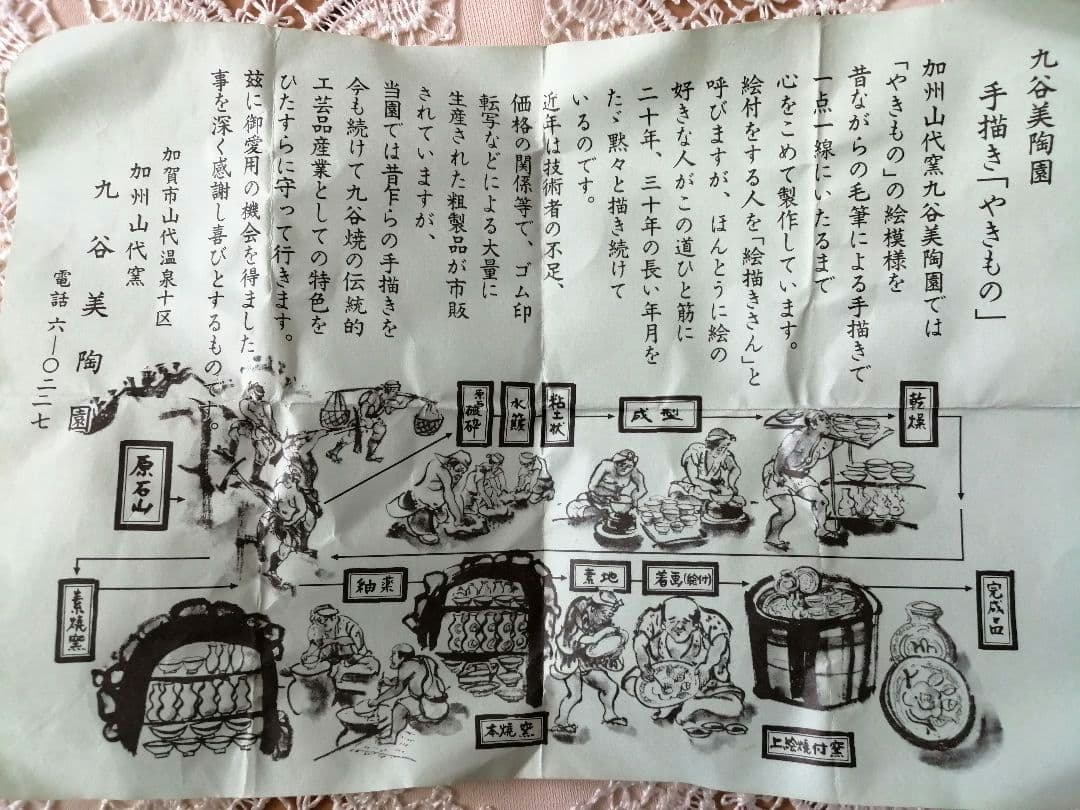 九谷美陶園
手描き「やきもの」
加州山代窯九谷美陶園では
「やきもの」の絵模様を
昔ながらの毛筆による手描きで
一点一線にいたるまで
心をこめて製作しています。
絵付をする人を「絵描きさん」と
呼びますが、ほんとうに絵の
好きな人がこの道ひと筋に
二十年、三十年の長い年月を
たゞ黙々と描き続けて
いるのです。
近年は技術者の不足、
価格の関係等で、ゴム印
転写などによる大量に
生産された粗製品が市販
されていますが、
当園では昔乍らの手描きを
今も続けて九谷焼の伝統的
工芸品産業としての特色を
ひたすらに守って行きます。
玆に御愛用の機会を得ました
事を深く感謝し喜びとするものです。
加賀市山代温泉十区
加州山代窯
九谷美陶園
電話六―〇二二七
原石山
砕
水簸
粘土状
成型
乾燥
素焼窯
釉薬
本焼窯
素地
着画(絵付)
上絵焼付窯
完成品